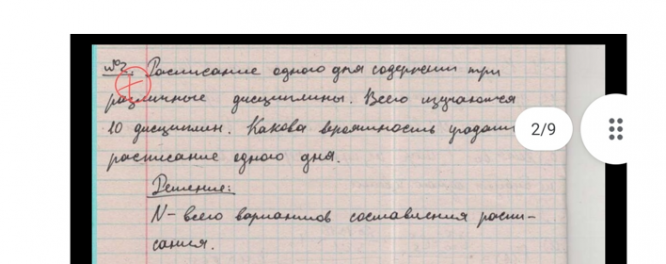 №2. Расписание одного дня содержит три
различные дисциплины. Всего изучаются
10 дисциплин. Какова вероятность угадать
расписание одного дня.
Решение:
N - всего вариантов составления распи-
сания.
2/9